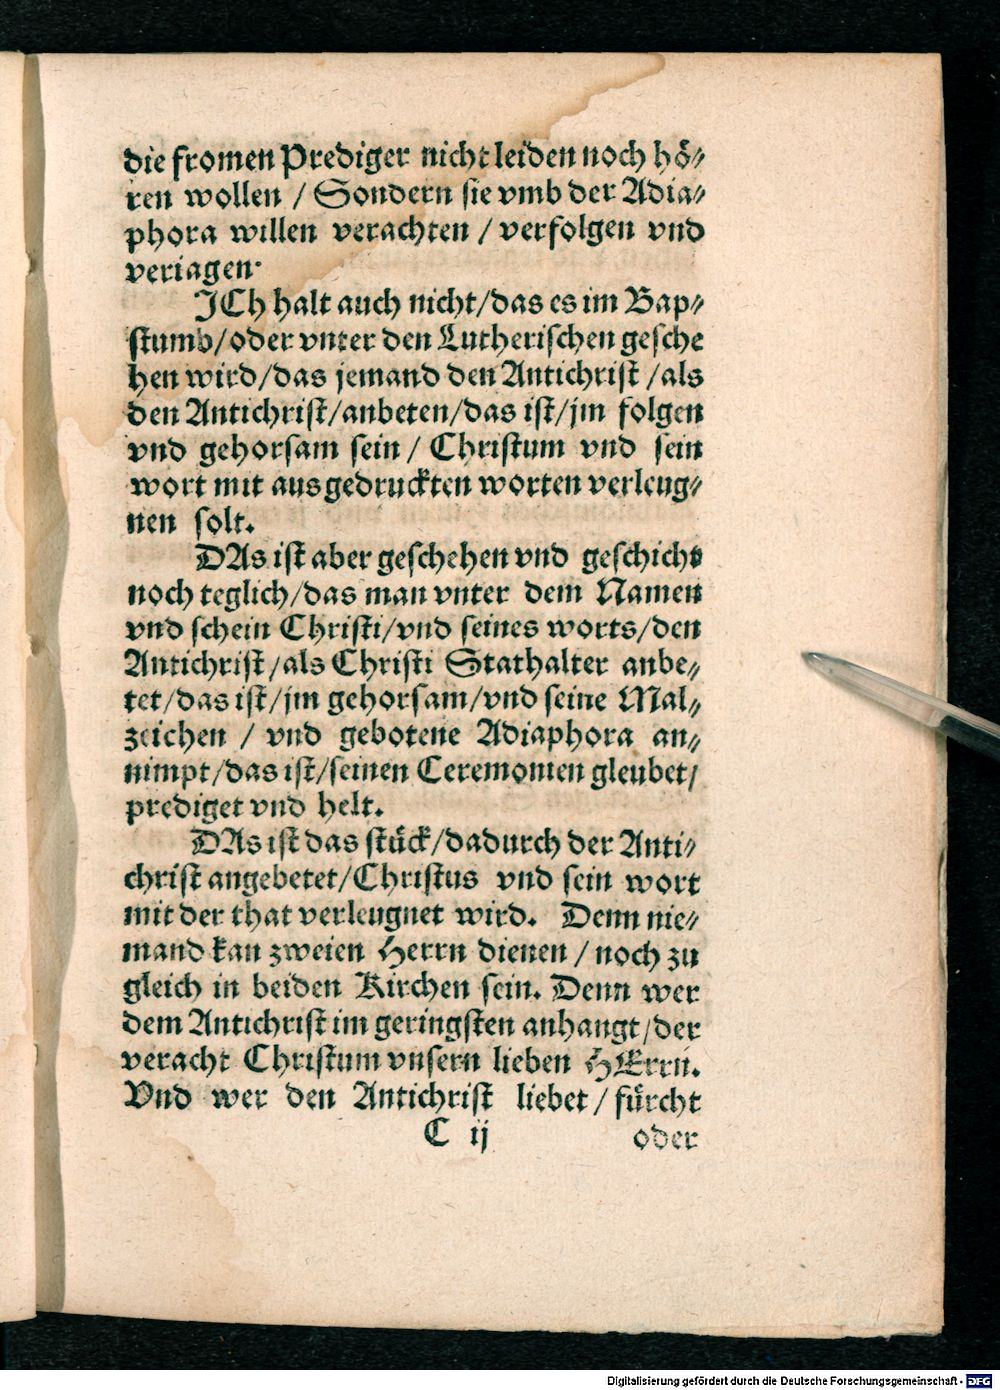 die fromen Prediger nicht leiden noch hoͤ⸗
ren wollen / Sondern sie vmb der Adia⸗
phora willen verachten / verfolgen vnd
veriagen.
JCh halt auch nicht/das es im Bap⸗
stumb/oder vnter den Lutherischen gesche
hen wird/das jemand den Antichrist /als
den Antichrist/anbeten/das ist/jm folgen
vnd gehorsam sein / Christum vnd sein
wort mit ausgedruckten worten verleug⸗
nen solt.
DAs ist aber geschehen vnd geschicht
noch teglich/das man vnter dem Namen
vnd schein Christi/vnd seines worts/den
Antichrist/als Christi Stathalter anbe⸗
tet/das ist/jm gehorsam/vnd seine Mal⸗
zeichen / vnd gebotene Adiaphora an⸗
nimpt/das ist/seinen Ceremonien gleubet/
prediget vnd helt.
DAs ist das stuͤck/dadurch der Anti⸗
christ angebetet/Christus vnd sein wort
mit der that verleugnet wird. Denn nie⸗
mand kan zweien Herrn dienen / noch zu
gleich in beiden Kirchen sein. Denn wer
dem Antichrist im geringsten anhangt/der
veracht Christum vnsern lieben HErrn.
Vnd wer den Antichrist liebet / fuͤrcht
C ij oder
Digitalisierung gefördert durch die Deutsche Forschungsgemeinschaft - DFG